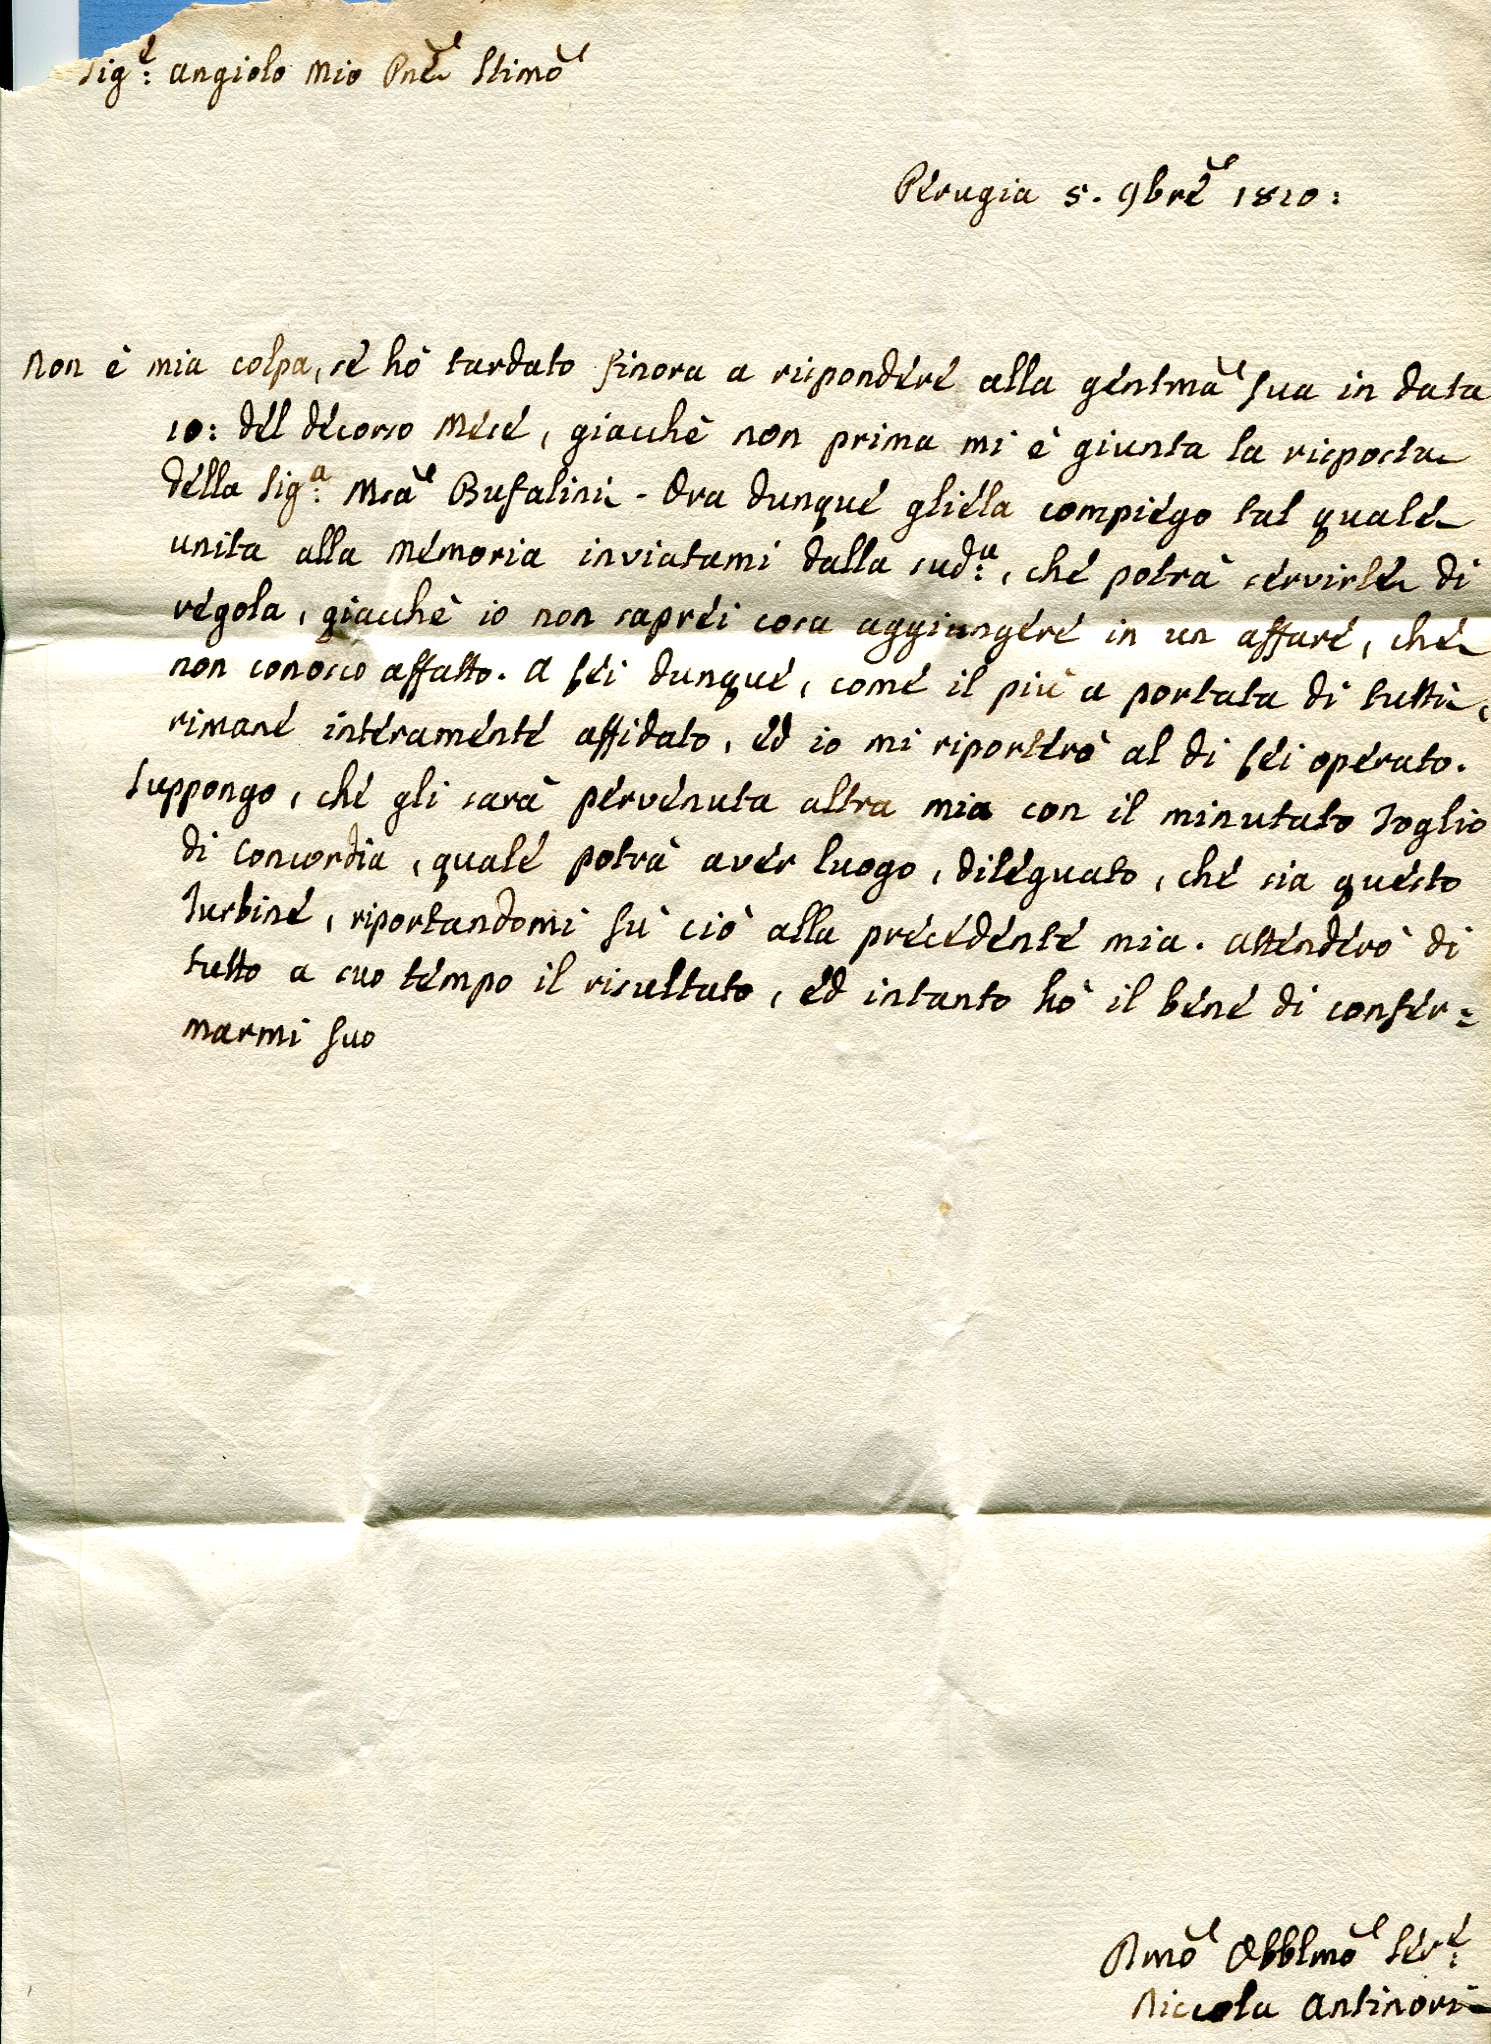 Sig:e Angiolo Mio Pne Stimo
Perugia 5. 9bre 1810:
Non è mia colpa, se hò tardato finora a rispondere alla gentma sua in data
10: del decorso Mese, giacchè non prima mi è giunta la risposta
della Sig:a Msa Bufalini. Ora dunque gliela compiego tal quale
unita alla Memoria inviatami dalla sud:a, che potrà servirle di
regola, giacchè io non saprei cosa aggiungere in un affare, che
non conosco affatto. A Lei dunque, come il più a portata di tutti,
rimane interamente affidato, ed io mi riporterò al di Lei operato.
Suppongo, che gli sarà pervenuta altra mia con il minutato Foglio
di Concordia, quale potrà aver luogo, dileguato, che sia questo
Turbine, riportandomi sù ciò alla precedente mia. Attenderò di
tutto a suo tempo il risultato, ed intanto hò il bene di confer=
marmi suo
Obblmo Ser:e
Niccola Antinori